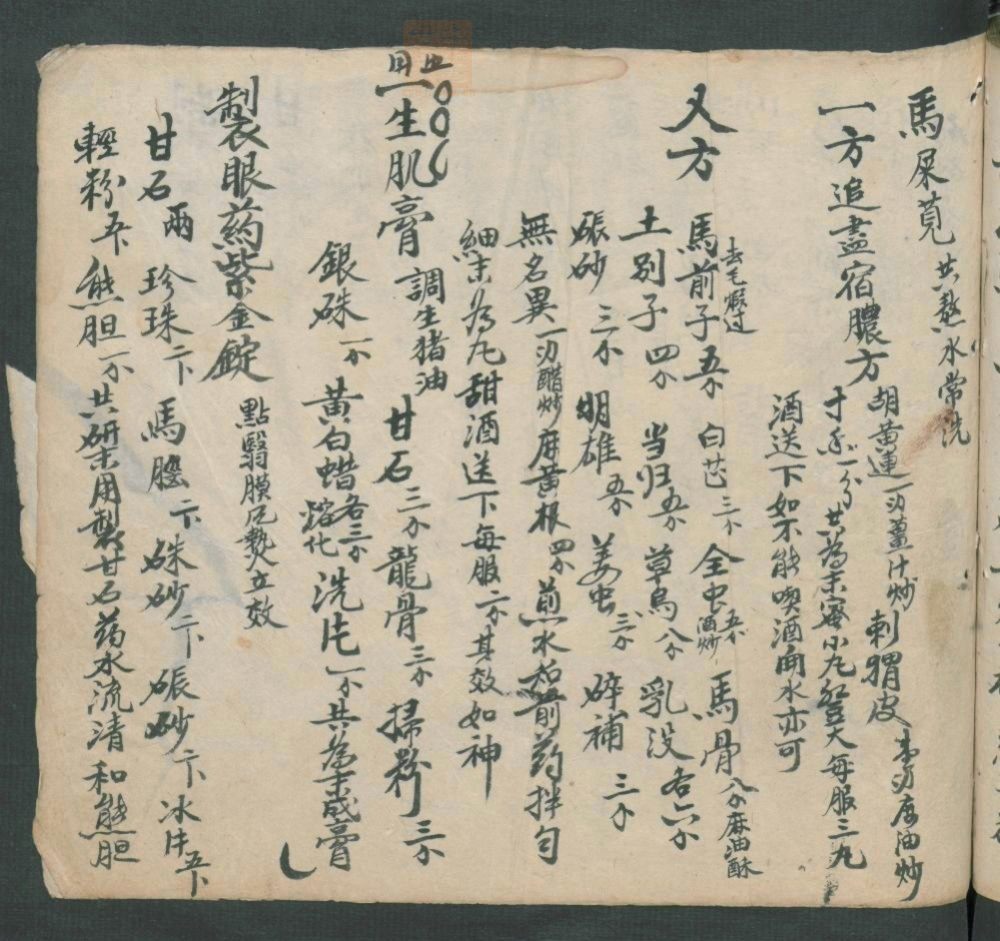 馬屎莧 共熬水常洗
一方追盡宿膿方 胡黄連一刃薑汁炒 刺猬皮 麻油炒
共為末蜜小丸 大每服三丸
酒送下如不能喫酒 水亦可
又方 馬前子五分 去毛煅过 白芷三分 全虫五分酒炒 馬骨八分麻油酥
土别子四分 当归五分 草烏八分 乳没各六分
砂三分 明雄五分 姜虫三分 碎補三分
無名異一刃醋炒 麻黄根四分 煎水 前药拌匀
細末為丸甜酒送下每服二分其效如神
生肌膏 調生猪油 甘石三分 龍骨三分 掃粉三分
銀硃一分 黄白蜡各三分熔化 洗片一分 共為末成膏
製眼药紫金錠 點翳膜 立效
甘石兩 珍珠二卞 馬 二卞 硃砂二卞 砂二卞 冰片五卞
輕粉五卞 熊胆一分 共研末用製甘石药水流清和熊胆